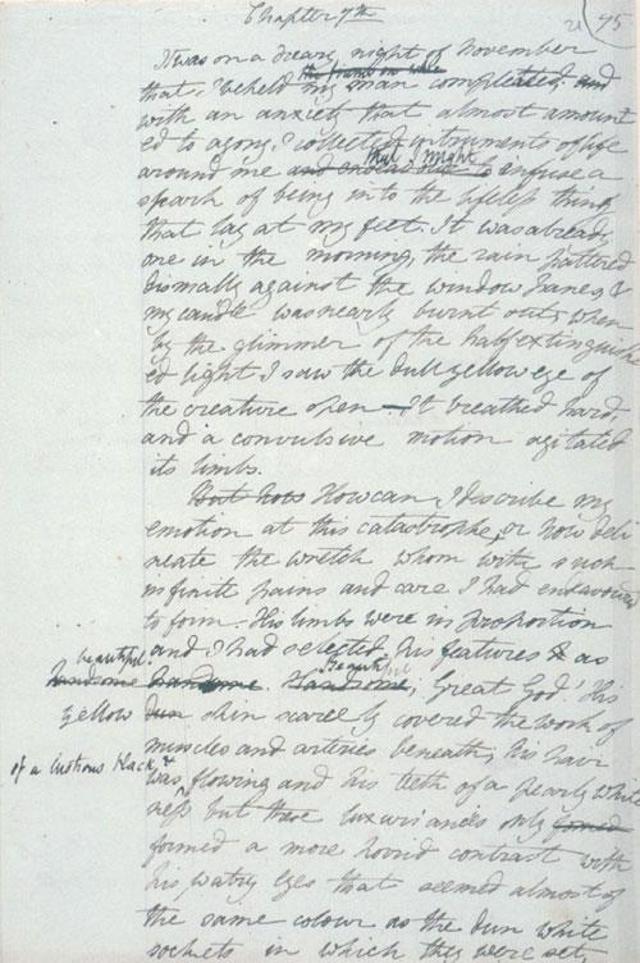 Chapter 7th
21 95
It was on a dreary night of November
the frame on whic
that I beheld my man compleated and
with an anxiety that almost amount
ed to agony I collected instruments of life
that I might
around me and to infuse a
spark of being into the lifeless thing
that lay at my feet. It was already
one in the morning, the rain pattered
dismally against the window panes, &
my candle was nearly burnt out, when
by the glimmer of the half extinguish
ed light I saw the dull yellow eye of
the creature open—It breathed hard,
and a convulsive motion agitated
its limbs.
But how How can I describe my
emotion at this catastrophe, or how deli
neate the wretch whom with such
infinite pains and care I had endeavoured
to form. His limbs were in proportion
and I had selected his features & as
beautiful beautiful
handsome handsome. Handsome; Great God! His
yellow dun skin scarcely covered the work of
muscles and arteries beneath; his hair
of a lustrous black, &
was flowing and his teeth of a pearly white
ness but these luxuriances only formed
formed a more horrid contrast with
his watry eyes that seemed almost of
the same colour as the dun white
sockets in which they were set,